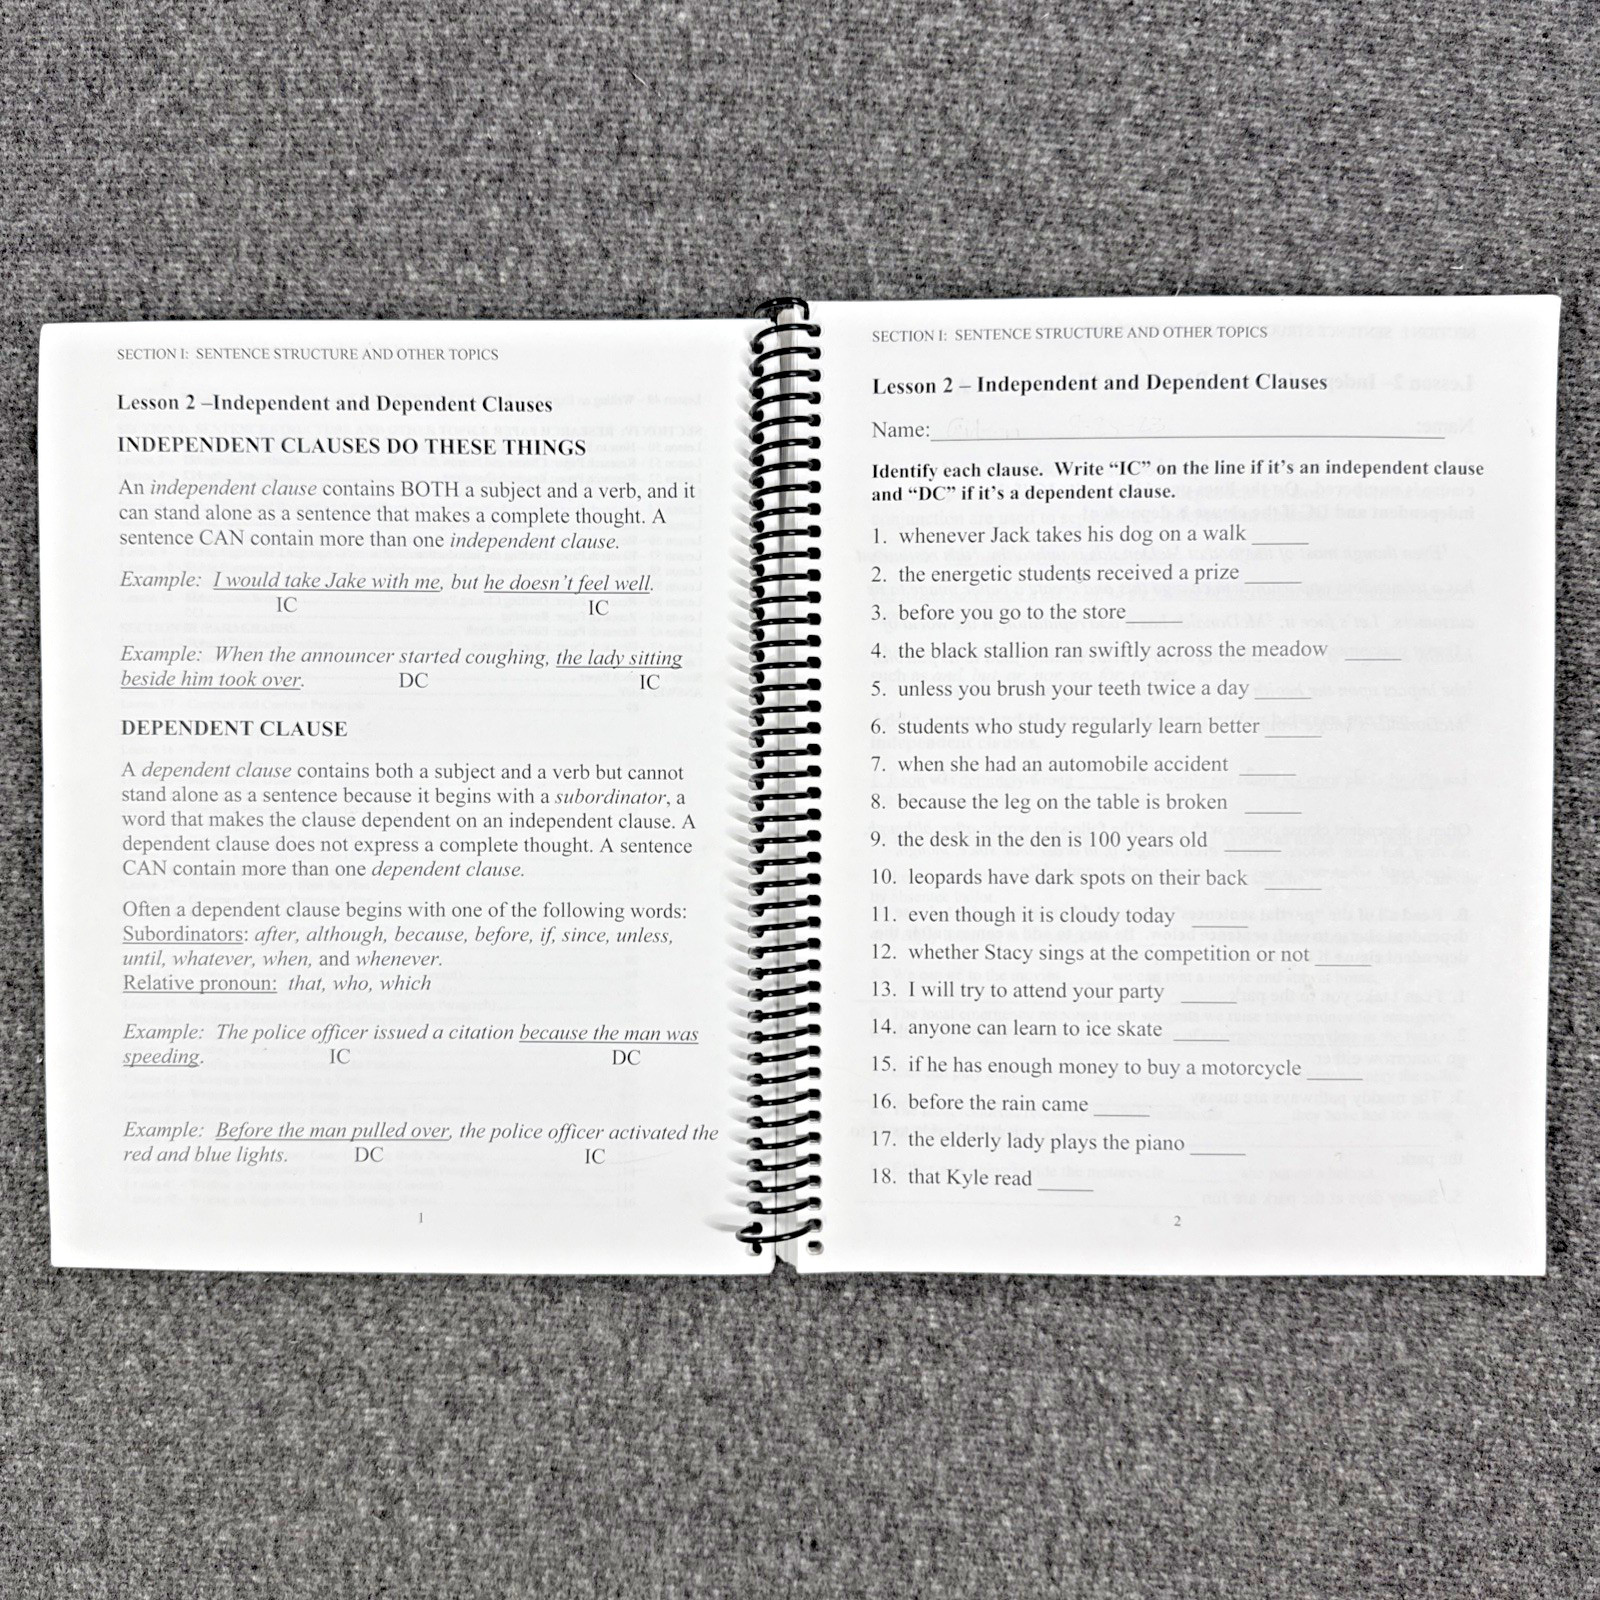 SECTION I: SENTENCE STRUCTURE AND OTHER TOPICS
Lesson 2 –Independent and Dependent Clauses
INDEPENDENT CLAUSES DO THESE THINGS
An independent clause contains BOTH a subject and a verb, and it
can stand alone as a sentence that makes a complete thought. A
sentence CAN contain more than one independent clause.
Example: I would take Jake with me, but he doesn't feel well.
IC IC
Example: When the announcer started coughing, the lady sitting
beside him took over. DC IC
DEPENDENT CLAUSE
A dependent clause contains both a subject and a verb but cannot
stand alone as a sentence because it begins with a subordinator, a
word that makes the clause dependent on an independent clause. A
dependent clause does not express a complete thought. A sentence
CAN contain more than one dependent clause.
Often a dependent clause begins with one of the following words:
Subordinators: after, although, because, before, if, since, unless,
until, whatever, when, and whenever.
Relative pronoun: that, who, which
Example: The police officer issued a citation because the man was
speeding. IC DC
Example: Before the man pulled over, the police officer activated the
red and blue lights. DC IC
1
SECTION I: SENTENCE STRUCTURE AND OTHER TOPICS
Lesson 2 – Independent and Dependent Clauses
Name:
Identify each clause. Write “IC” on the line if it's an independent clause
and “DC” if it's a dependent clause.
1. whenever Jack takes his dog on a walk _____
2. the energetic students received a prize _____
3. before you go to the store_____
4. the black stallion ran swiftly across the meadow _____
5. unless you brush your teeth twice a day _____
6. students who study regularly learn better _____
7. when she had an automobile accident _____
8. because the leg on the table is broken _____
9. the desk in the den is 100 years old _____
10. leopards have dark spots on their back _____
11. even though it is cloudy today _____
12. whether Stacy sings at the competition or not _____
13. I will try to attend your party _____
14. anyone can learn to ice skate _____
15. if he has enough money to buy a motorcycle _____
16. before the rain came _____
17. the elderly lady plays the piano _____
18. that Kyle read _____
2